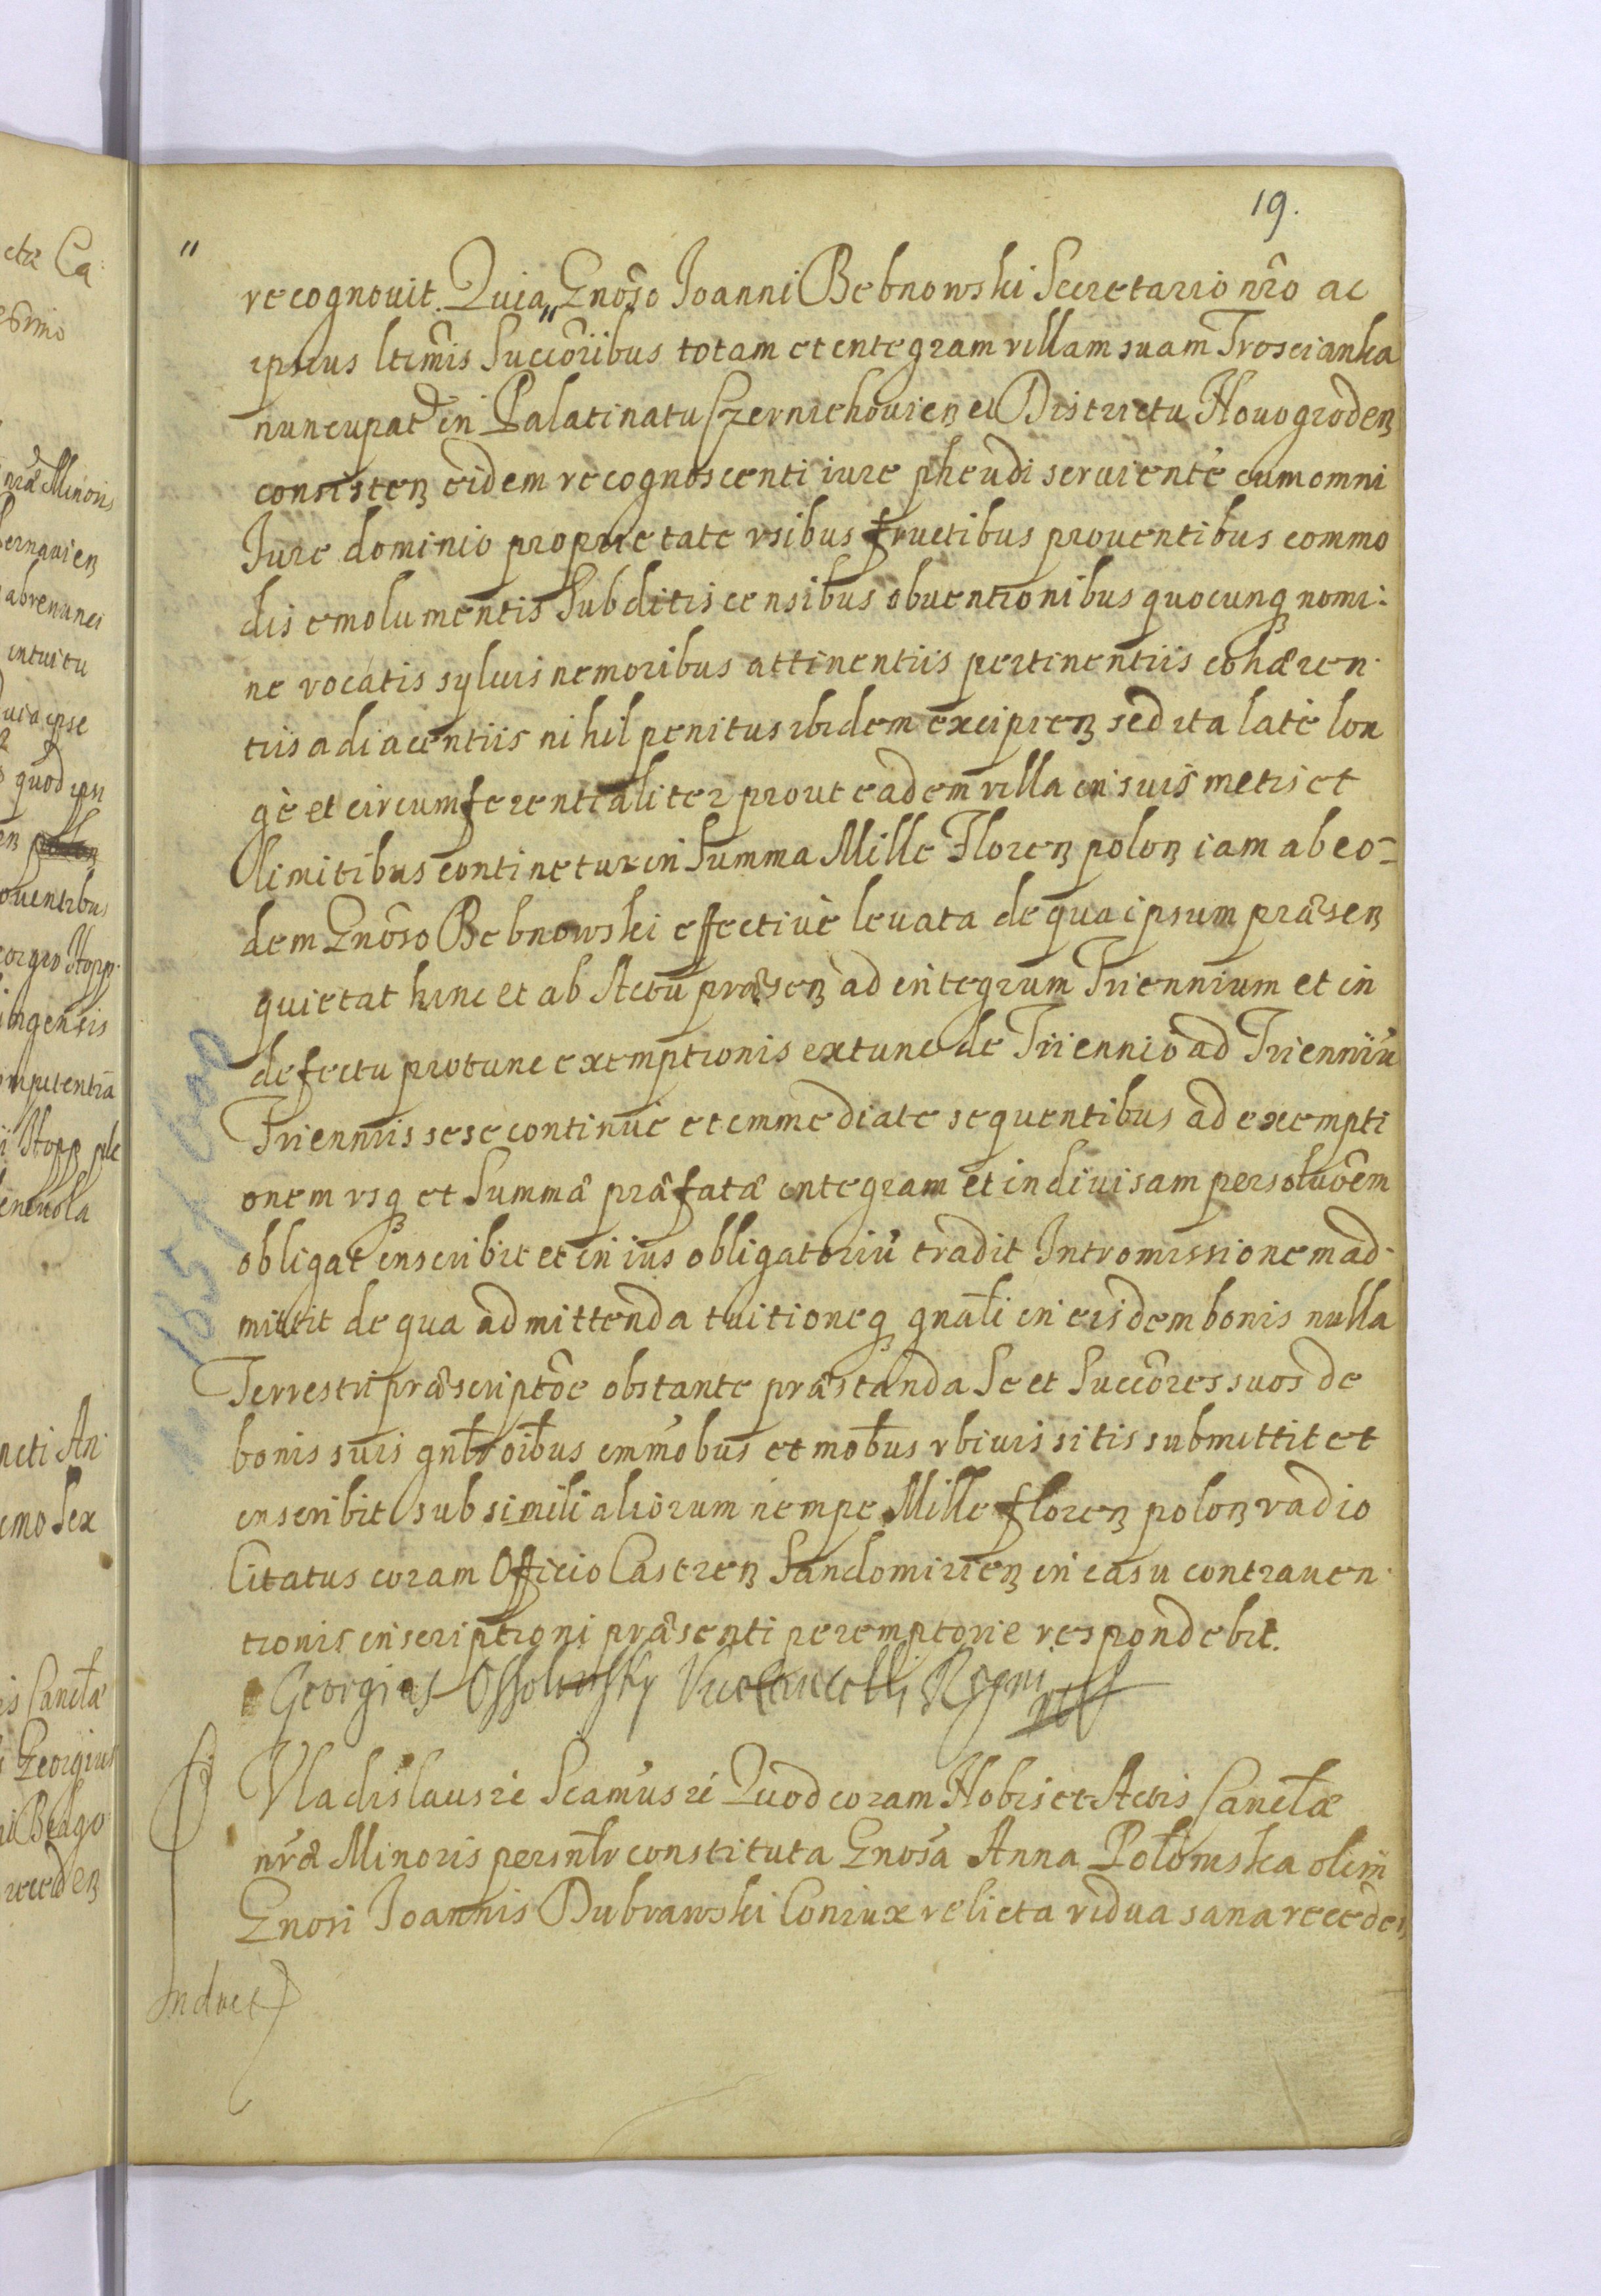 19.
"
recognouit. Quia „ Gnoso Joanni Bebnowski Secretario nro ac
ipsius ltimis Succoribus totam et integram villam suam Troscianka
nuncupat in Palatinatu Czernichouien et Districtu Nouogroden
consisten eidem recognoscenti iure pheudi seruiente cum omni
Jure dominio proprietate vsibus fructibus prouentibus commo
dis emolumentis Subditis censibus obuentionibus quocunq nomi:
ne vocatis syluis nemoribus attinentiis pertinentiis cohæren
tiis adiacentiis nihil penitus ibidem excipien sed ita latè lon
gè et circumferentialiter prout eadem villa in suis metis et
limitibus continetur in Summa Mille Floren polon iam ab eo=
dem Gnoso Bebnowski effectiuè leuata de qua ipsum præsen
quietat hinc et ab Actu præsen ad integrum Triennium et in
defectu protunc exemptionis extunc de Triennio ad Trienniũ
Trienniis sese continuè et immediate sequentibus ad exempti
onem vsq et Summæ præfatæ integram et indiuisam persoluoem
obligat inscribit et in ius obligatoriũ tradit Intromissionem ad
mittit de qua admittenda tuitioneq gnali in eisdem bonis nulla
Terrestri præscriptoe obstante præstanda Se et Succores suos de
bonis suis gnlr oibus immobus et mobus vbiuis sitis submittit et
inscribit sub simili aliorum nempe Mille floren polon vadio
Citatus coram Officio Castren Sandomirien in casu contrauen
tionis inscriptioni præsenti peremptorie respondebit.
Georgius Ossolinsky Vicecancelli Regni
Vladislaus rć Scamus rć Quod coram Nobis et Actis Cancllæ
nræ Minoris persnlr constituta Gnosa Anna Polomska olim
Gnosi Joannis Dubrawski Coniux relicta vidua sana receden
Induct